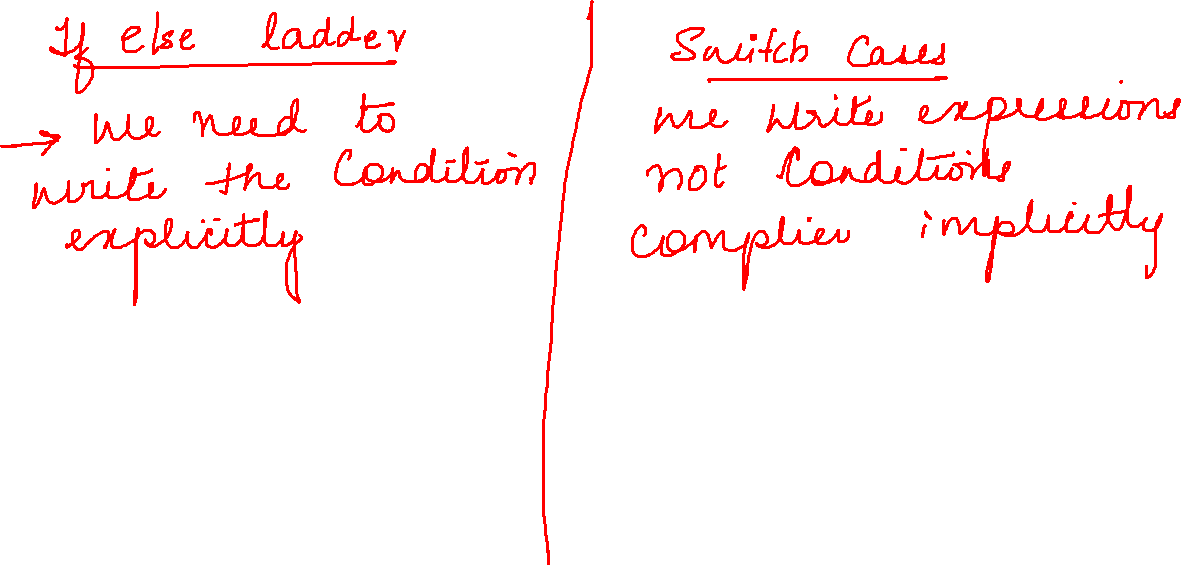 If else ladder
→ we need to
write the Condition
explicitly
Switch Cases
we write expressions
not Conditions
complier implicitly